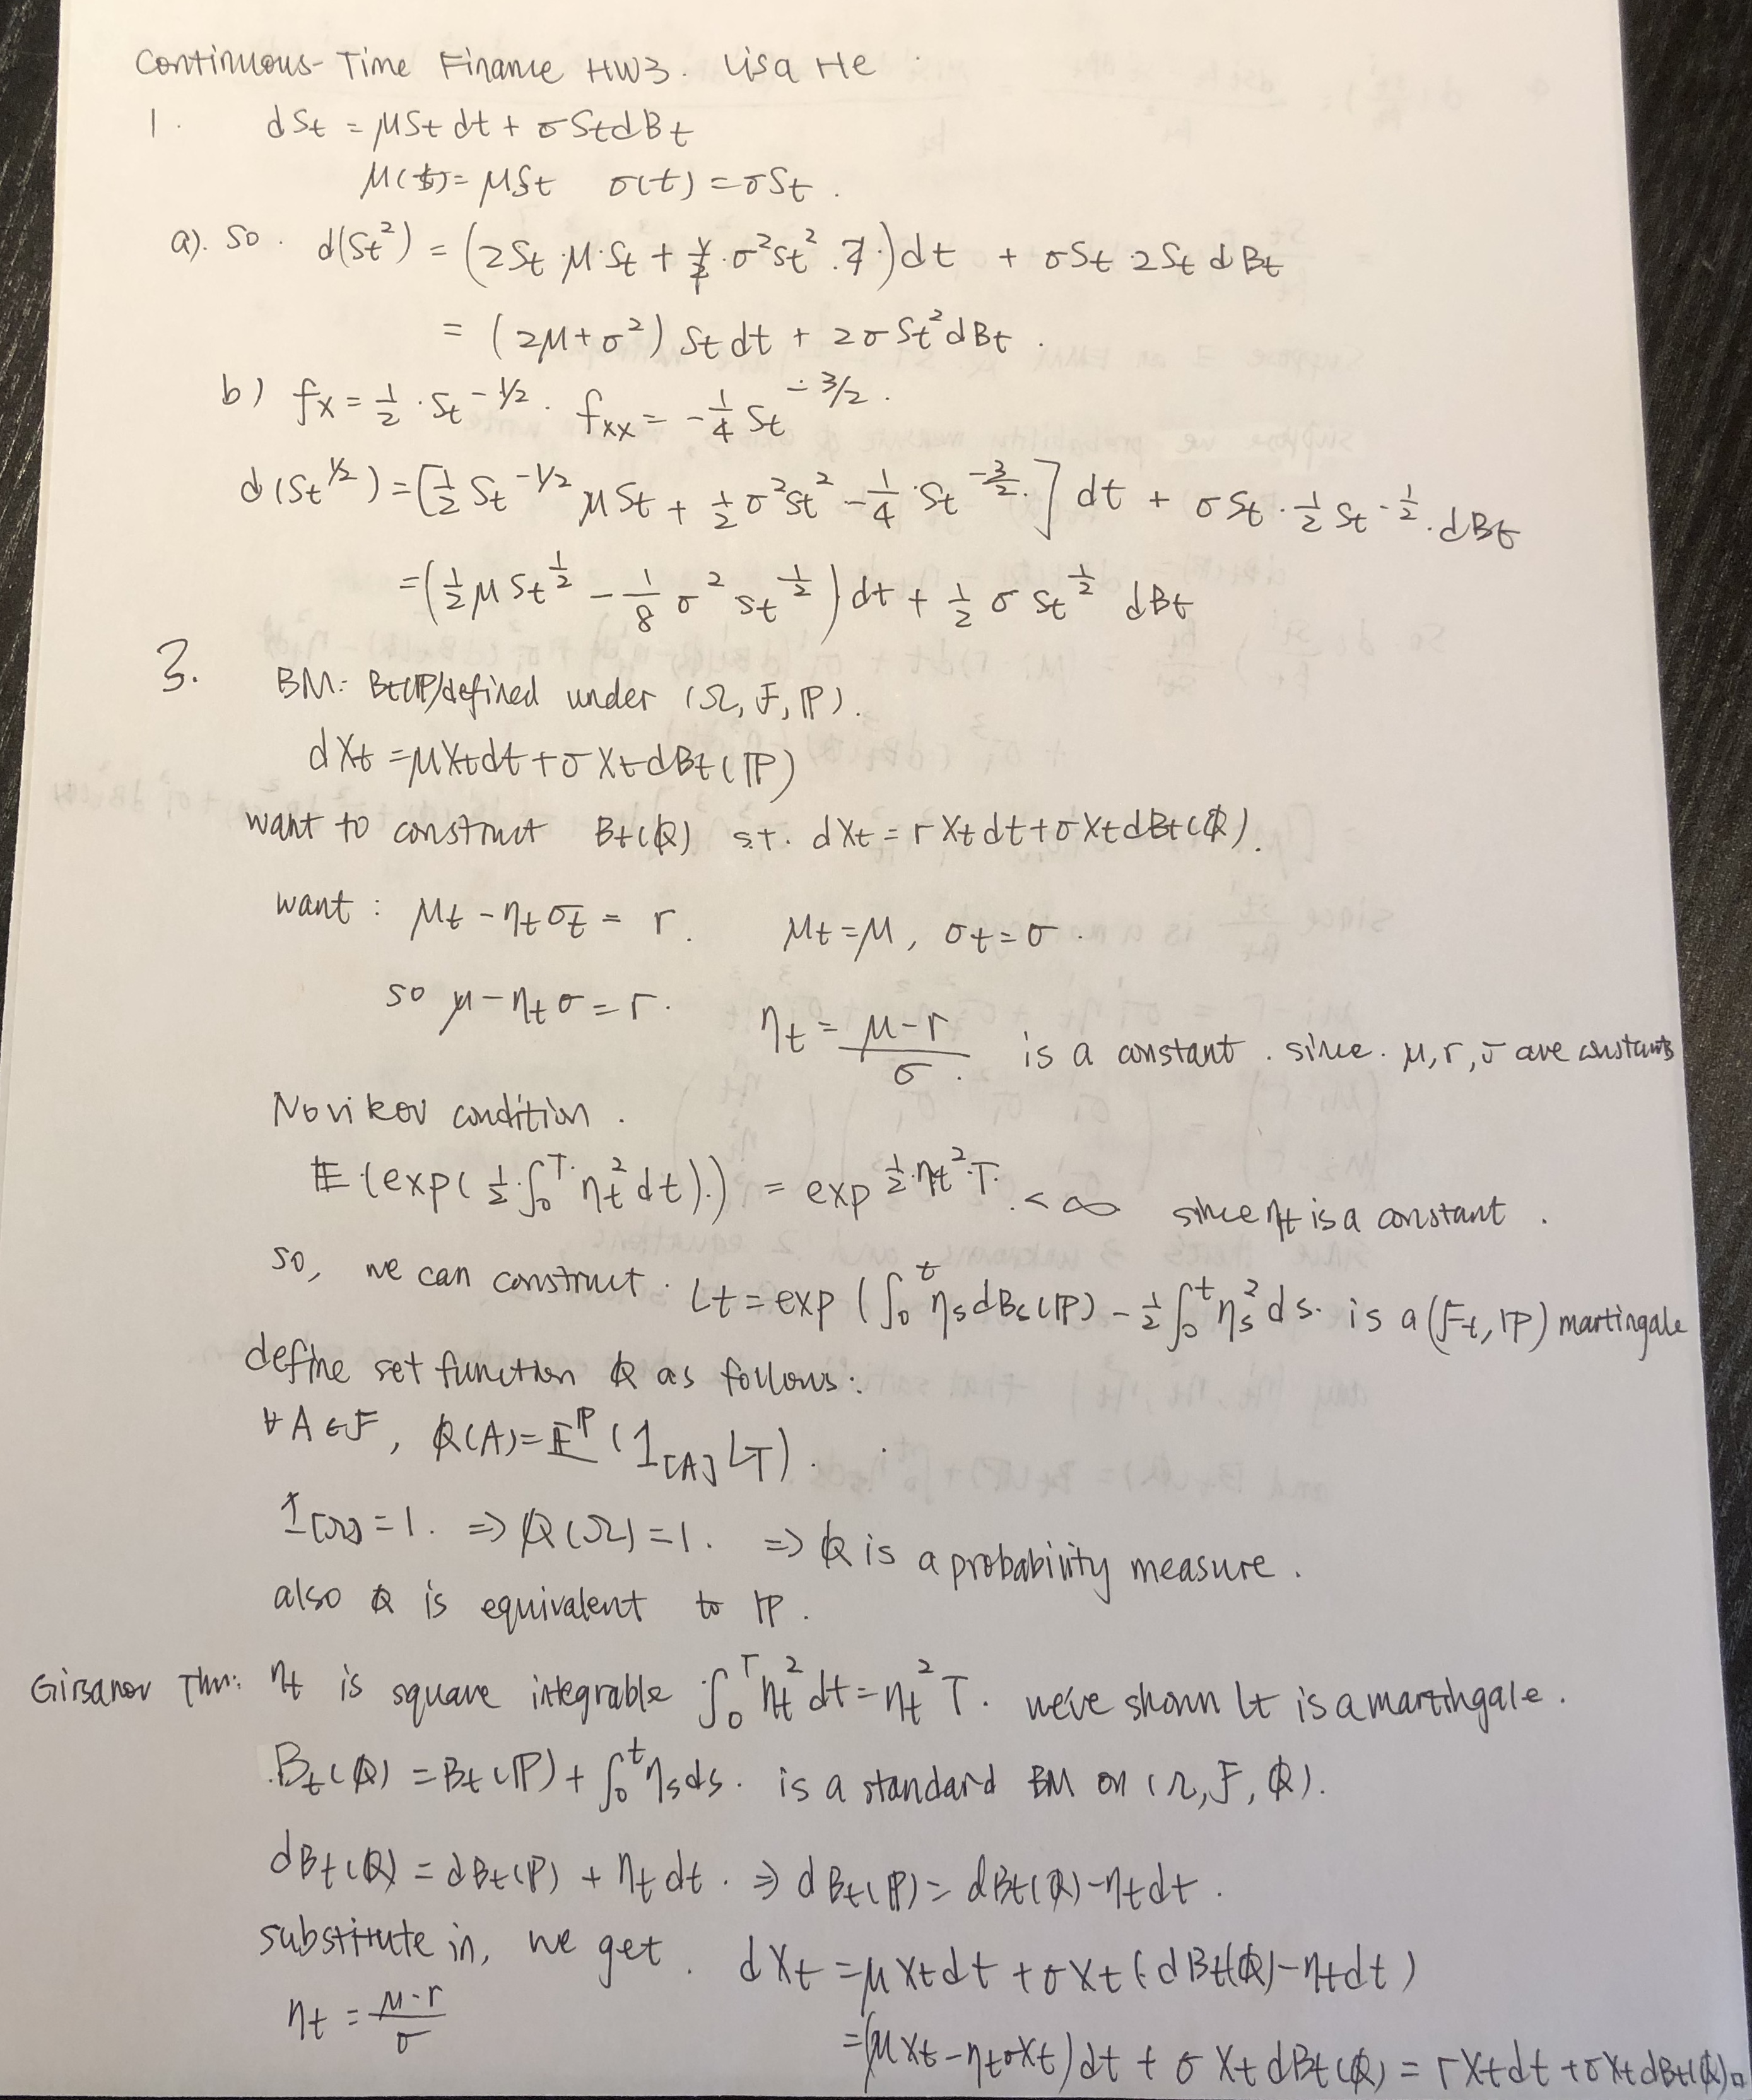 Continuous-Time Finance HW3. Lisa He
1. dSt = μSt dt + σStdBt
μ(t) = μSt σ(t) = σSt.
a). So. d(St²) = (2St·μ·St + 1/2·σ²St²·2·)dt + σSt·2St dBt
= (2μ+σ²) St dt + 2σSt²dBt.
b) fx = 1/2·St^-1/2. fxx = -1/4 St^-3/2.
d(St^1/2) = [1/2 St^-1/2 μSt + 1/2 σ²St² -1/4·St^-3/2.] dt + σSt·1/2 St^-1/2.dBt
= (1/2 μSt^1/2 - 1/8 σ² St^1/2) dt + 1/2 σ St^1/2 dBt
3. BM: Bt(ℙ) defined under (Ω, F, ℙ).
dXt = μXtdt + σXtdBt(ℙ)
want to construct Bt(ℚ) s.t. dXt = rXtdt + σXtdBt(ℚ).
want: μt - ηtσt = r. μt = μ, σt = σ.
so μ - ηtσ = r. ηt = μ-r/σ. is a constant. since. μ, r, σ are constants
Novikov condition.
𝔼(exp(1/2·∫₀ᵀ ηt²dt).) = exp^1/2·ηt²·T. < ∞ since ηt is a constant.
so, we can construct. Lt = exp(∫₀ᵗ ηsdBs(ℙ) - 1/2∫₀ᵗ ηs²ds. is a (Ft, ℙ) martingale
define set function ℚ as follows:
∀A∈F, ℚ(A) = 𝔼^ℙ(1[A] LT).
1[Ω] = 1. ⇒ ℚ(Ω) = 1. ⇒ ℚ is a probability measure.
also ℚ is equivalent to ℙ.
Girsanov Thm: ηt is square integrable ∫₀ᵀ ηt²dt = ηt²T. we've shown Lt is a martingale.
Bt(ℚ) = Bt(ℙ) + ∫₀ᵗ ηsds. is a standard BM on (Ω, F, ℚ).
dBt(ℚ) = dBt(ℙ) + ηtdt. ⇒ dBt(ℙ) = dBt(ℚ) - ηtdt.
substitute in, we get. dXt = μXtdt + σXt(dBt(ℚ) - ηtdt)
ηt = μ-r/σ
= (μXt - ηtσXt)dt + σXtdBt(ℚ) = rXtdt + σXtdBt(ℚ)□